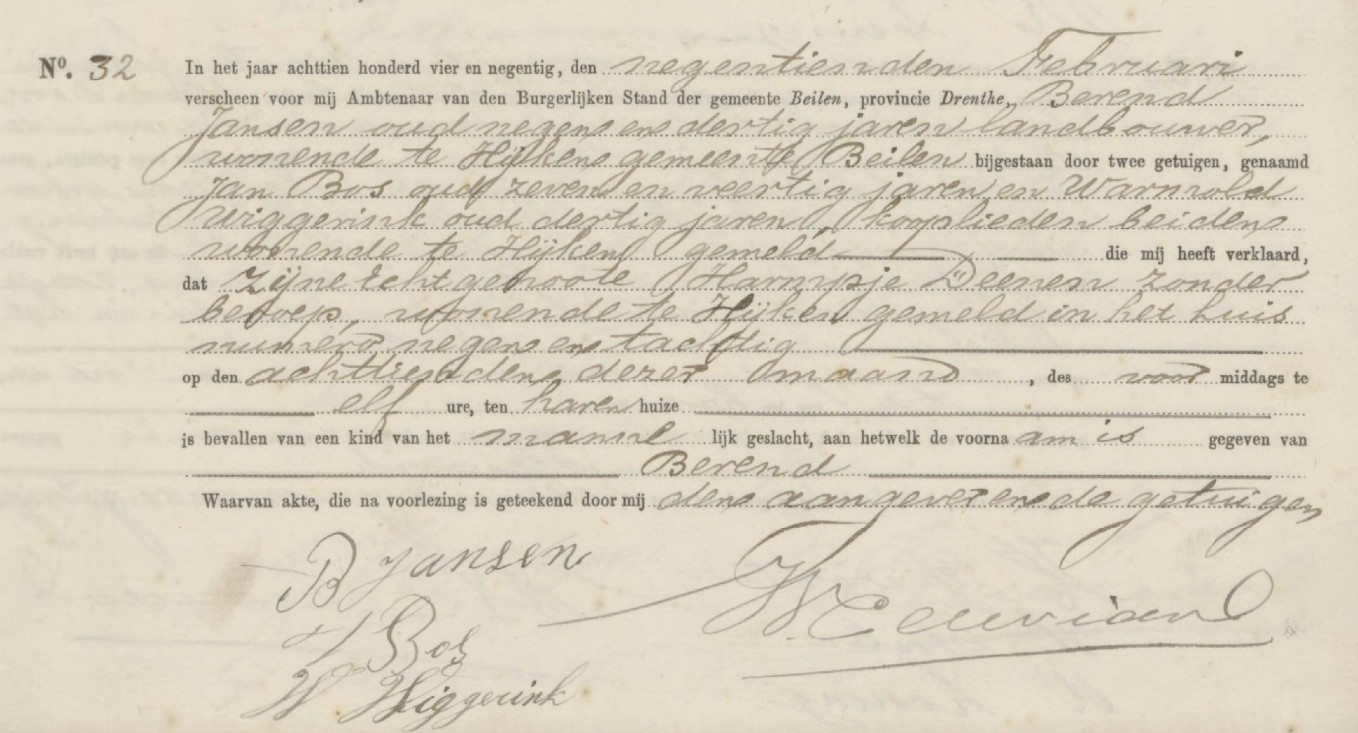 No. 32 In het jaar achttien honderd vier en negentig, den negentienden Februari
verscheen voor mij Ambtenaar van den Burgerlijken Stand der gemeente Beilen, provincie Drenthe, Berend
Jansen oud negen en dertig jaren landbouwer,
wonende te Hijken gemeente Beilen bijgestaan door twee getuigen, genaamd
Jan Bos oud zeven en veertig jaren en Warmold
Wiggerink oud dertig jaren, beiden
wonende te Hijken gemeld die mij heeft verklaard,
dat Zijne Echtgenoote Harmpje Deenen zonder
beroep, wonende te Hijken gemeld in het huis
numero negen en tachtig
op den achttienden dezer maand, des voor middags te
elf ure, ten haren huize
is bevallen van een kind van het manne lijk geslacht, aan hetwelk de voorna am is gegeven van
Berend
Waarvan akte, die na voorlezing is geteekend door mij den aangever en de getuigen
B Jansen
J Bos
W Wiggerink